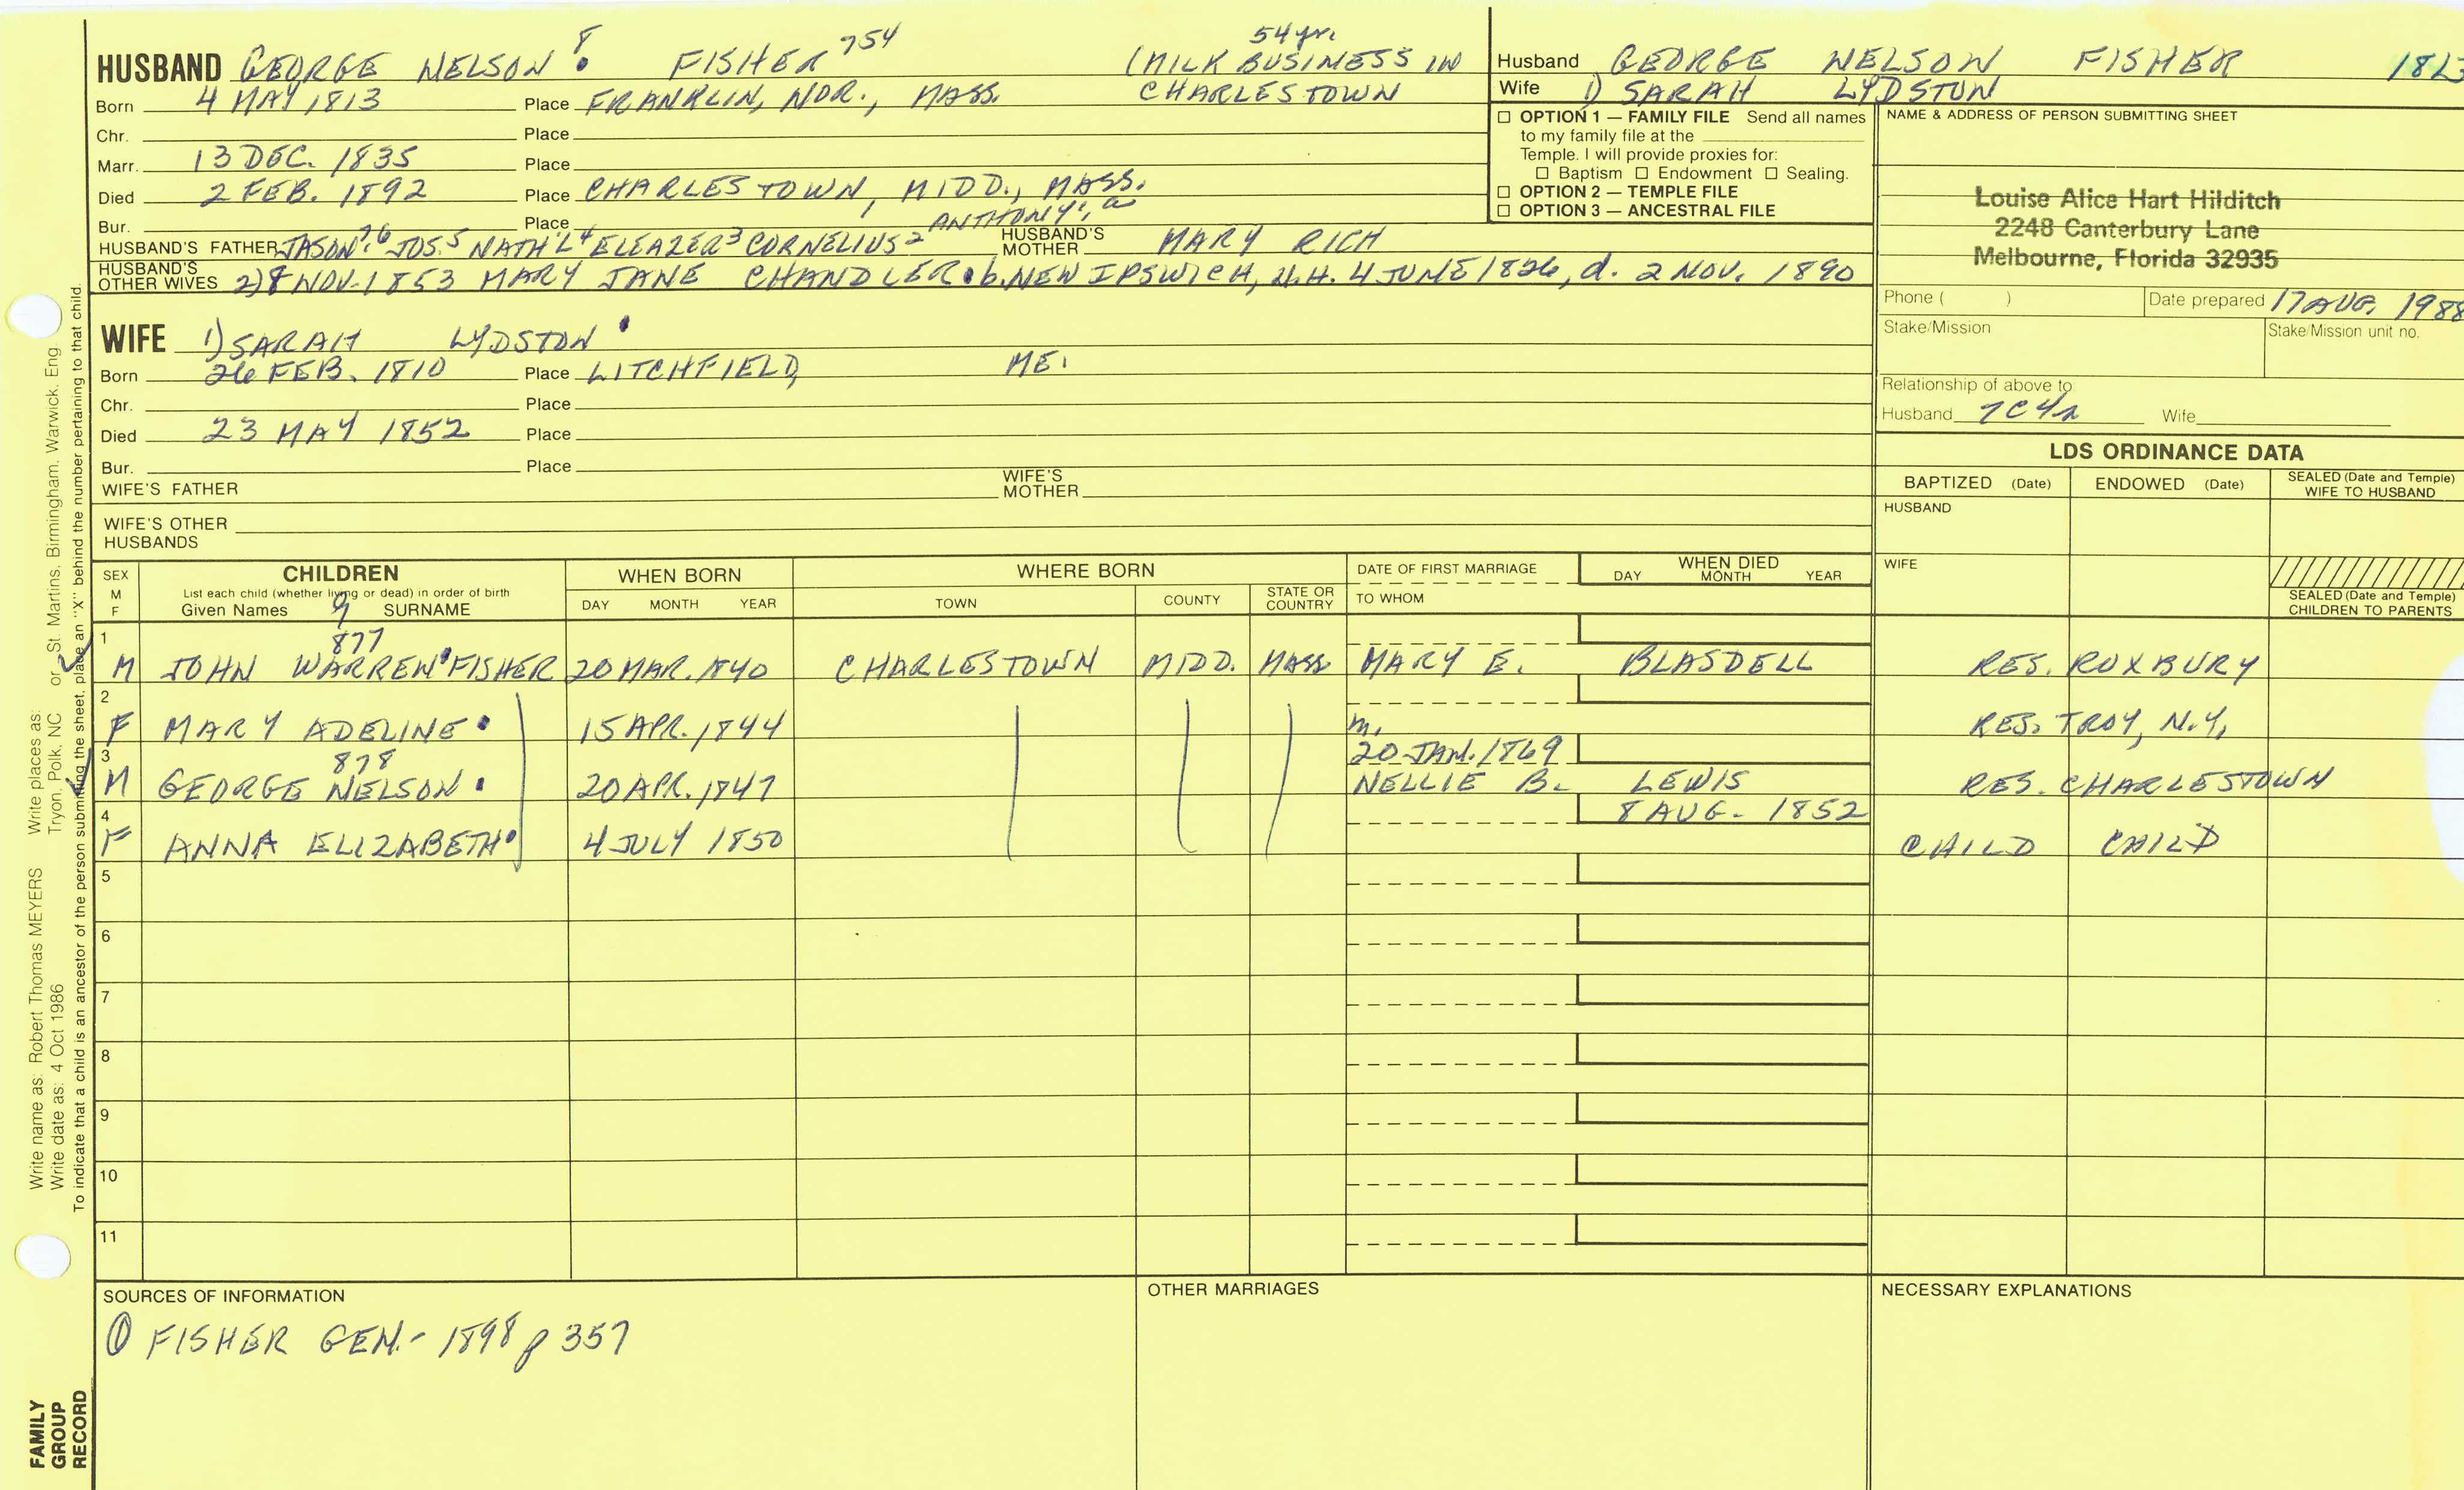 HUSBAND GEORGE NELSON 8 FISHER 754 (MILK BUSINESS IN 54 yr. CHARLESTOWN
Born 4 MAY 1813 Place FRANKLIN, NOR., MASS.
Chr. Place
Marr. 13 DEC. 1835 Place
Died 2 FEB. 1892 Place CHARLESTOWN, MIDD., MASS.
Bur. Place
HUSBAND'S FATHER JASON 7, 6 JOS. 5 NATH'L 4 ELEAZER 3 CORNELIUS 2 ANTHONY 1, a HUSBAND'S MOTHER MARY RICH
HUSBAND'S OTHER WIVES 2) 8 NOV. 1853 MARY JANE CHANDLER b. NEW IPSWICH, N.H. 4 JUNE 1826, d. 2 NOV. 1890
WIFE 1) SARAH LYDSTON
Born 26 FEB. 1810 Place LITCHFIELD, ME.
Chr. Place
Died 23 MAY 1852 Place
Bur. Place
WIFE'S FATHER WIFE'S MOTHER
WIFE'S OTHER HUSBANDS
Husband GEORGE NELSON FISHER
Wife 1) SARAH LYDSTON
☐ OPTION 1 — FAMILY FILE Send all names
to my family file at the
Temple. I will provide proxies for:
☐ Baptism ☐ Endowment ☐ Sealing.
☐ OPTION 2 — TEMPLE FILE
☐ OPTION 3 — ANCESTRAL FILE
NAME & ADDRESS OF PERSON SUBMITTING SHEET
Louise Alice Hart Hilditch
2248 Canterbury Lane
Melbourne, Florida 32935
Phone ( ) Date prepared 17 AUG. 1988
Stake/Mission Stake/Mission unit no.
Relationship of above to:
Husband 7C4r Wife
LDS ORDINANCE DATA
BAPTIZED (Date) ENDOWED (Date) SEALED (Date and Temple) WIFE TO HUSBAND
HUSBAND
WIFE
SEALED (Date and Temple) CHILDREN TO PARENTS
SEX M F CHILDREN WHEN BORN WHERE BORN DATE OF FIRST MARRIAGE WHEN DIED
List each child (whether living or dead) in order of birth
Given Names 9 SURNAME DAY MONTH YEAR TOWN COUNTY STATE OR COUNTRY TO WHOM DAY MONTH YEAR
1 877
M JOHN WARREN FISHER 20 MAR. 1840 CHARLESTOWN MIDD. MASS MARY E. BLASDELL RES. ROXBURY
2
F MARY ADELINE 15 APR. 1844 m. RES. TROY, N.Y.
3 878 20 JAN. 1869
M GEORGE NELSON 20 APR. 1847 NELLIE B. LEWIS RES. CHARLESTOWN
4 8 AUG. 1852
F ANNA ELIZABETH 4 JULY 1850 CHILD CHILD
5
6
7
8
9
10
11
SOURCES OF INFORMATION OTHER MARRIAGES NECESSARY EXPLANATIONS
① FISHER GEN. - 1898 p 357
FAMILY GROUP RECORD
Write name as: Robert Thomas MEYERS Write places as: Tryon, Polk, NC or St. Martins, Birmingham, Warwick, Eng.
Write date as: 4 Oct 1986
To indicate that a child is an ancestor of the person submitting the sheet, place an "X" behind the number pertaining to that child.